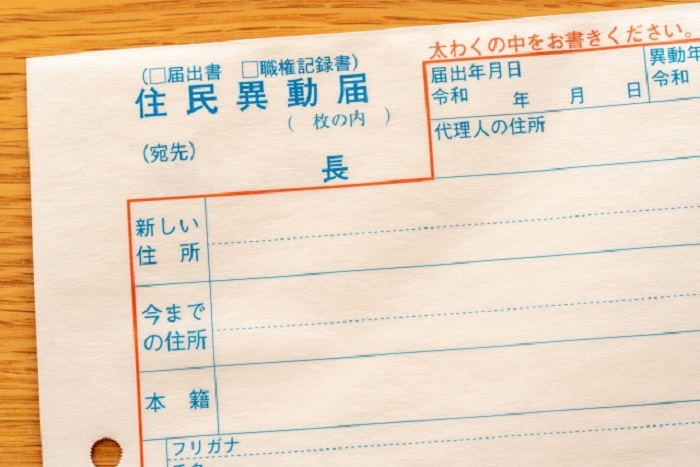 太わくの中をお書きください。
(□届出書 □職権記録書)
住民異動届
( 枚の内 )
(宛先)
長
届出年月日
令和 年 月 日
異動年
令和
代理人の住所
新しい
住所
今まで
の住所
本籍
フリガナ